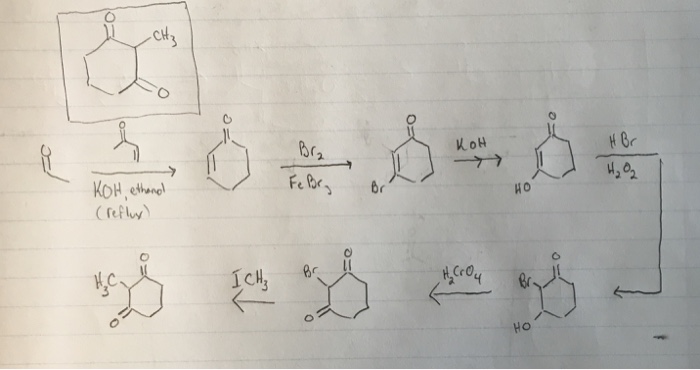 O
CH3
O
O
O
KOH, ethanol
(reflux)
O
Br2
FeBr3
O
Br
KOH
O
HO
HBr
H2O2
O
H3C
O
ICH3
O
Br
O
H2CrO4
O
Br
HO